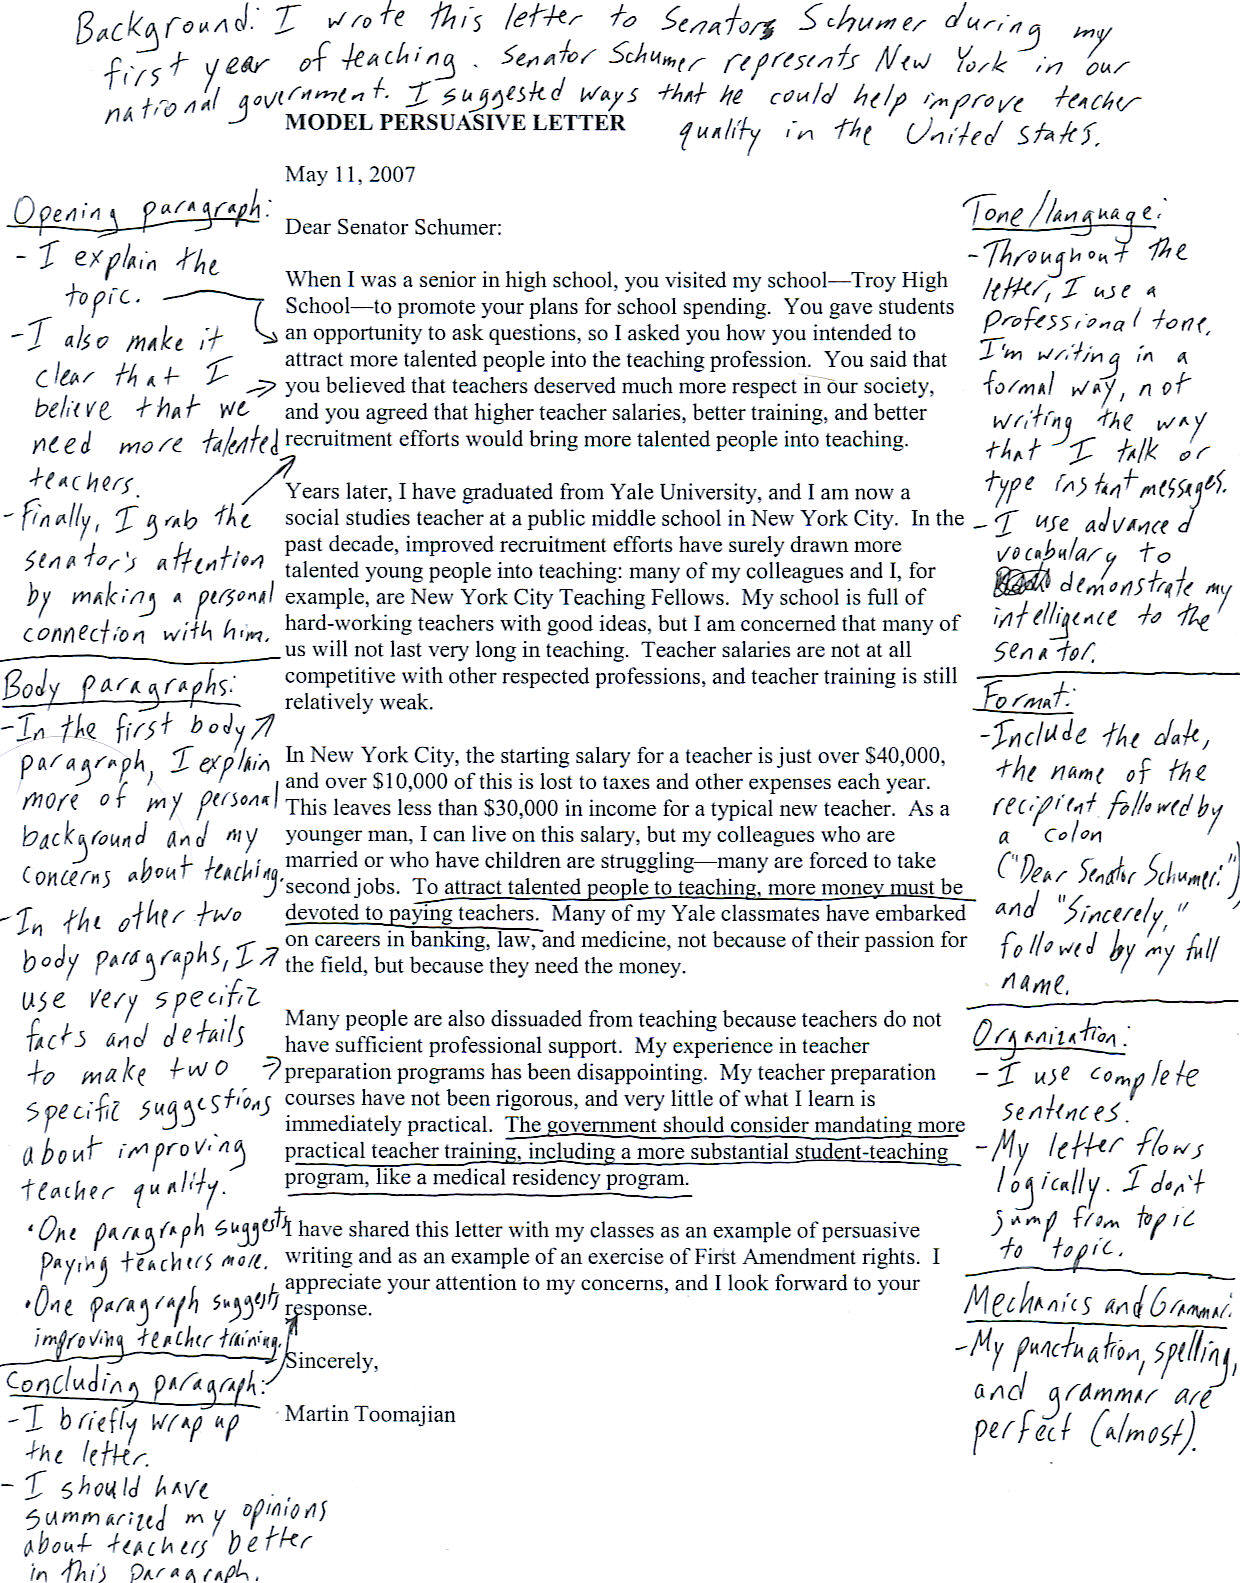 Background: I wrote this letter to Senator Schumer during my
first year of teaching. Senator Schumer represents New York in our
national government. I suggested ways that he could help improve teacher
quality in the United States.
MODEL PERSUASIVE LETTER
May 11, 2007
Dear Senator Schumer:
When I was a senior in high school, you visited my school—Troy High
School—to promote your plans for school spending. You gave students
an opportunity to ask questions, so I asked you how you intended to
attract more talented people into the teaching profession. You said that
you believed that teachers deserved much more respect in our society,
and you agreed that higher teacher salaries, better training, and better
recruitment efforts would bring more talented people into teaching.
Years later, I have graduated from Yale University, and I am now a
social studies teacher at a public middle school in New York City. In the
past decade, improved recruitment efforts have surely drawn more
talented young people into teaching: many of my colleagues and I, for
example, are New York City Teaching Fellows. My school is full of
hard-working teachers with good ideas, but I am concerned that many of
us will not last very long in teaching. Teacher salaries are not at all
competitive with other respected professions, and teacher training is still
relatively weak.
In New York City, the starting salary for a teacher is just over $40,000,
and over $10,000 of this is lost to taxes and other expenses each year.
This leaves less than $30,000 in income for a typical new teacher. As a
younger man, I can live on this salary, but my colleagues who are
married or who have children are struggling—many are forced to take
second jobs. To attract talented people to teaching, more money must be
devoted to paying teachers. Many of my Yale classmates have embarked
on careers in banking, law, and medicine, not because of their passion for
the field, but because they need the money.
Many people are also dissuaded from teaching because teachers do not
have sufficient professional support. My experience in teacher
preparation programs has been disappointing. My teacher preparation
courses have not been rigorous, and very little of what I learn is
immediately practical. The government should consider mandating more
practical teacher training, including a more substantial student-teaching
program, like a medical residency program.
I have shared this letter with my classes as an example of persuasive
writing and as an example of an exercise of First Amendment rights. I
appreciate your attention to my concerns, and I look forward to your
response.
Sincerely,
Martin Toomajian
Opening paragraph:
- I explain the
topic.
- I also make it
clear that I
believe that we
need more talented
teachers.
- Finally, I grab the
senator's attention
by making a personal
connection with him.
Body paragraphs:
- In the first body
paragraph, I explain
more of my personal
background and my
concerns about teaching.
- In the other two
body paragraphs, I
use very specific
facts and details
to make two
specific suggestions
about improving
teacher quality.
• One paragraph suggests
paying teachers more.
• One paragraph suggests
improving teacher training.
Concluding paragraph:
- I briefly wrap up
the letter.
- I should have
summarized my opinions
about teachers better
in this paragraph.
Tone/language:
- Throughout the
letter, I use a
professional tone.
I'm writing in a
formal way, not
writing the way
that I talk or
type instant messages.
- I use advanced
vocabulary to
demonstrate my
intelligence to the
senator.
Format:
- Include the date,
the name of the
recipient followed by
a colon
("Dear Senator Schumer:")
and "Sincerely,"
followed by my full
name.
Organization:
- I use complete
sentences.
- My letter flows
logically. I don't
jump from topic
to topic.
Mechanics and Grammar:
- My punctuation, spelling,
and grammar are
perfect (almost).